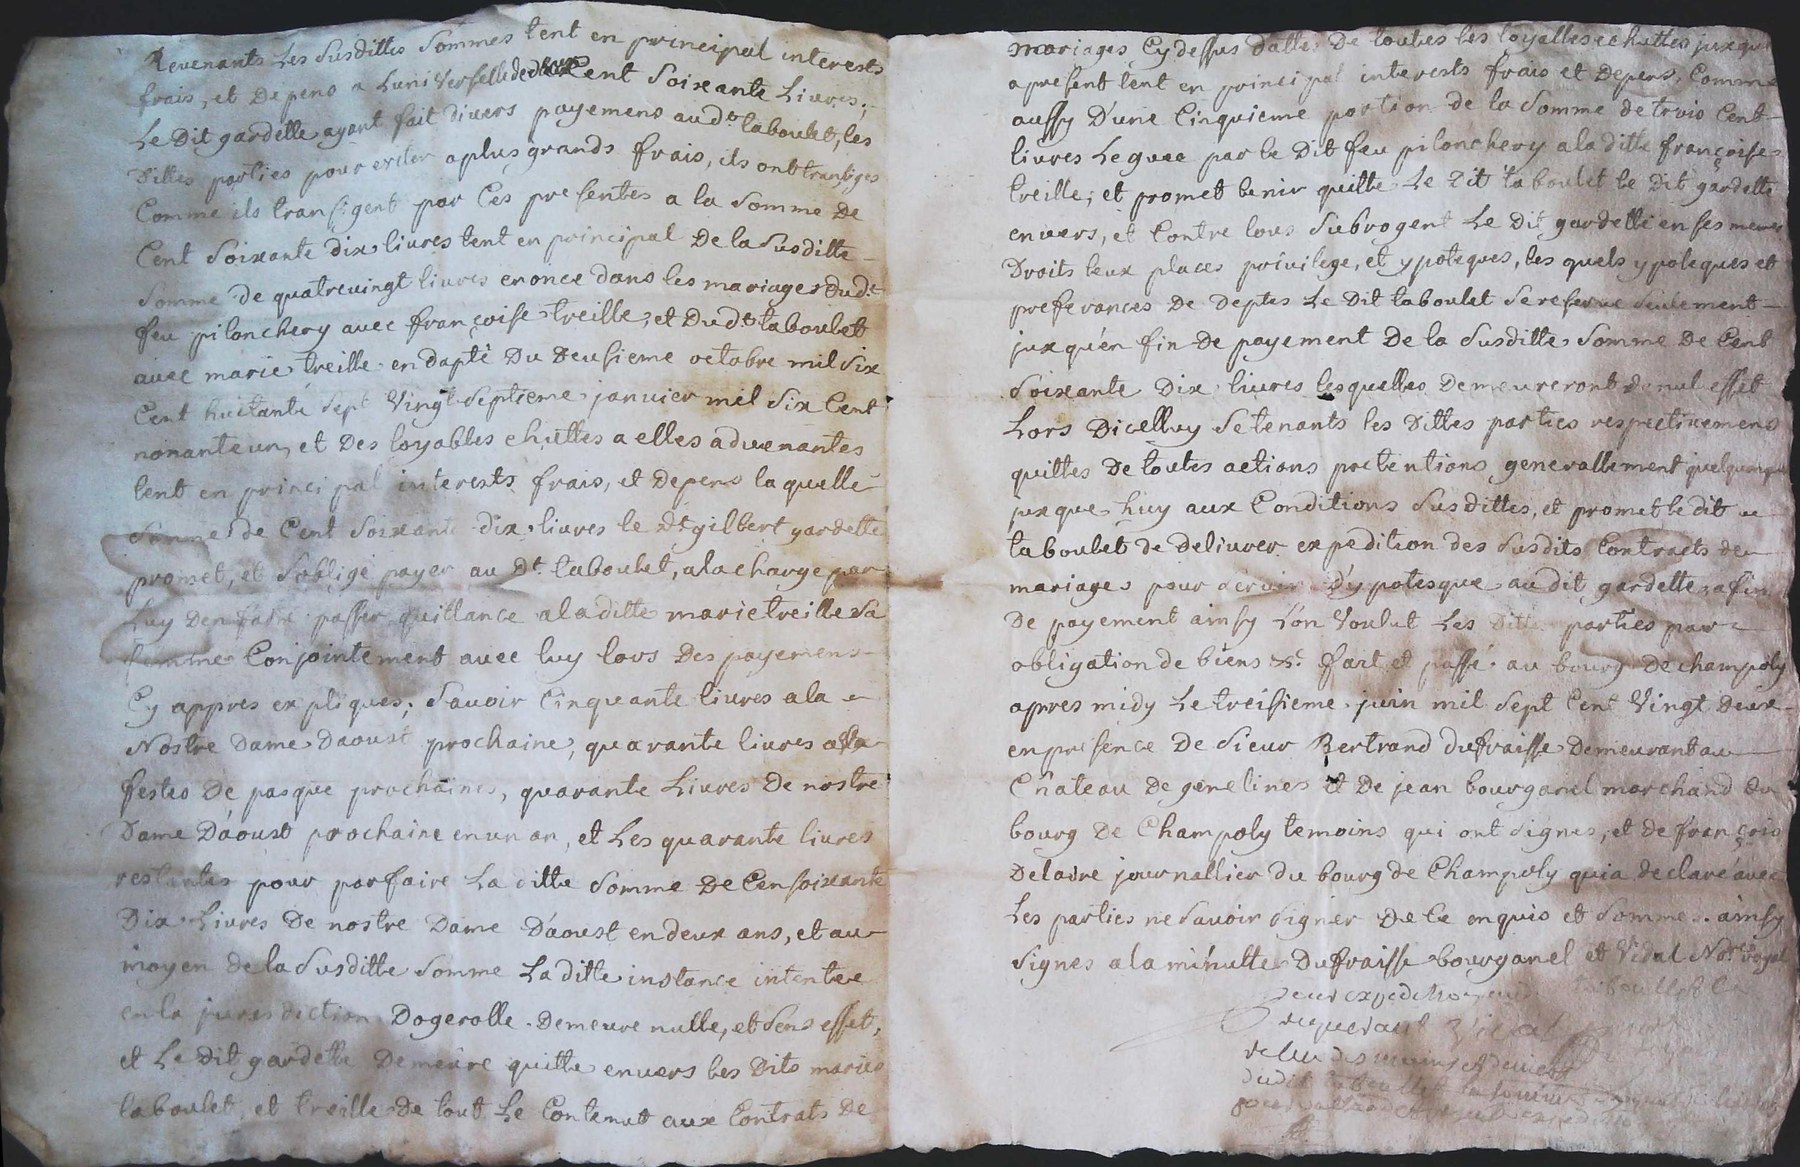 Revenants Les Susdittes Sommes tent en principal interests
frais, et Depens a Luniverselle de deux Cent Soixante Livres,
Le Dit gardelle ayant fait divers payemens au dt. taboulet, les
Dittes parties pour eviter a plus grands frais, ils ont transiges
Comme ils transigent par Ces presentes a la Somme De
Cent Soixante dix livres tent en principal De la Susditte
Somme de quatrevingt livres enonce dans les mariages Dudt.
feu pilonchery avec françoise treille, et Dudt. taboulet
avec marie treille en dapte Du Deusieme octobre mil Six
Cent huitante Sept Vingt Septieme janvier mil Six Cent
nonanteun, et Des loyables chuttes a elles advenantes
tent en principal interests frais, et depens laquelle
Somme de Cent Soixante dix livres le Dt. gilbert gardette
promet, et S'oblige payer au Dt. taboulet, a la charge par
Luy Den faire passer quittance a laditte marie treille Sa
femme Conjointement avec luy lors Des payemens
Cy appres expliques; Savoir Cinquante livres a la
Nostre Dame Daoust prochaine, quarante livres a la
festes De pasque prochaines, quarante Livres De nostre
Dame D'aoust prochaine en un an, et Les quarante livres
restantes pour parfaire La ditte Somme De Cen soixante
Dix Livres De nostre Dame D'aoust en deux ans, et au
moyen de la Susditte Somme La ditte instance intentée
en la jurisdiction Dogerolle Demeure nulle, et Sens effet,
et Le Dit gardette Demeure quitte envers les Dits maries
taboulet, et treille de tout Le Contenut aux Contrats De
mariages Cy dessus dattes De toutes les loyalles echuttes jusque
apresent tent en principal interests frais et Depens, Comme
aussy D'une Cinquieme portion de la Somme de trois Cent
livres Leguee par le Dit feu pilonchery a la ditte françoise
treille; et promet tenir quitte Le Dit taboulet le Dit gardette
envers, et Contre tous Subrogent Le Dit gardette en ses memes
Droits leux places privilege, et ypoteques, les quels ypoteques et
preferances De Deptes Le Dit taboulet Se reserve Seulement
jusqu'en fin De payement De la Susditte Somme De Cent
Soixante Dix livres lesquelles Demeureront de nul effet
Lors Dicelluy Se tenants les Dittes parties respectivement
quittes De toutes actions pretentions generallement quelquonque
jusque huy aux Conditions Susdittes, et promet le dit
taboulet de Delivrer expedition des Susdits Contracts de
mariages pour servir D'ypotesque au dit gardette afin
De payement ainsy L'on Voulut Les Dittes parties par
obligation de biens &c. fait et passé au bourg De champoly
apres midy Le treisieme juin mil Sept Cent Vingt Deux
en presence De Sieur Bertrand dufraisse Demeurant au
Château de genelines et De jean bourganel marchand du
bourg De Champoly temoins qui ont Signes, et de françois
Delaire journallier du bourg de Champoly qui a declaré avec
Les parties ne Savoir Signer De Ce enquis et Sommes. ainsy
Signes a la minutte Dufraisse bourganel et Vidal Nore. royal
pour expedition
requerant Vidal